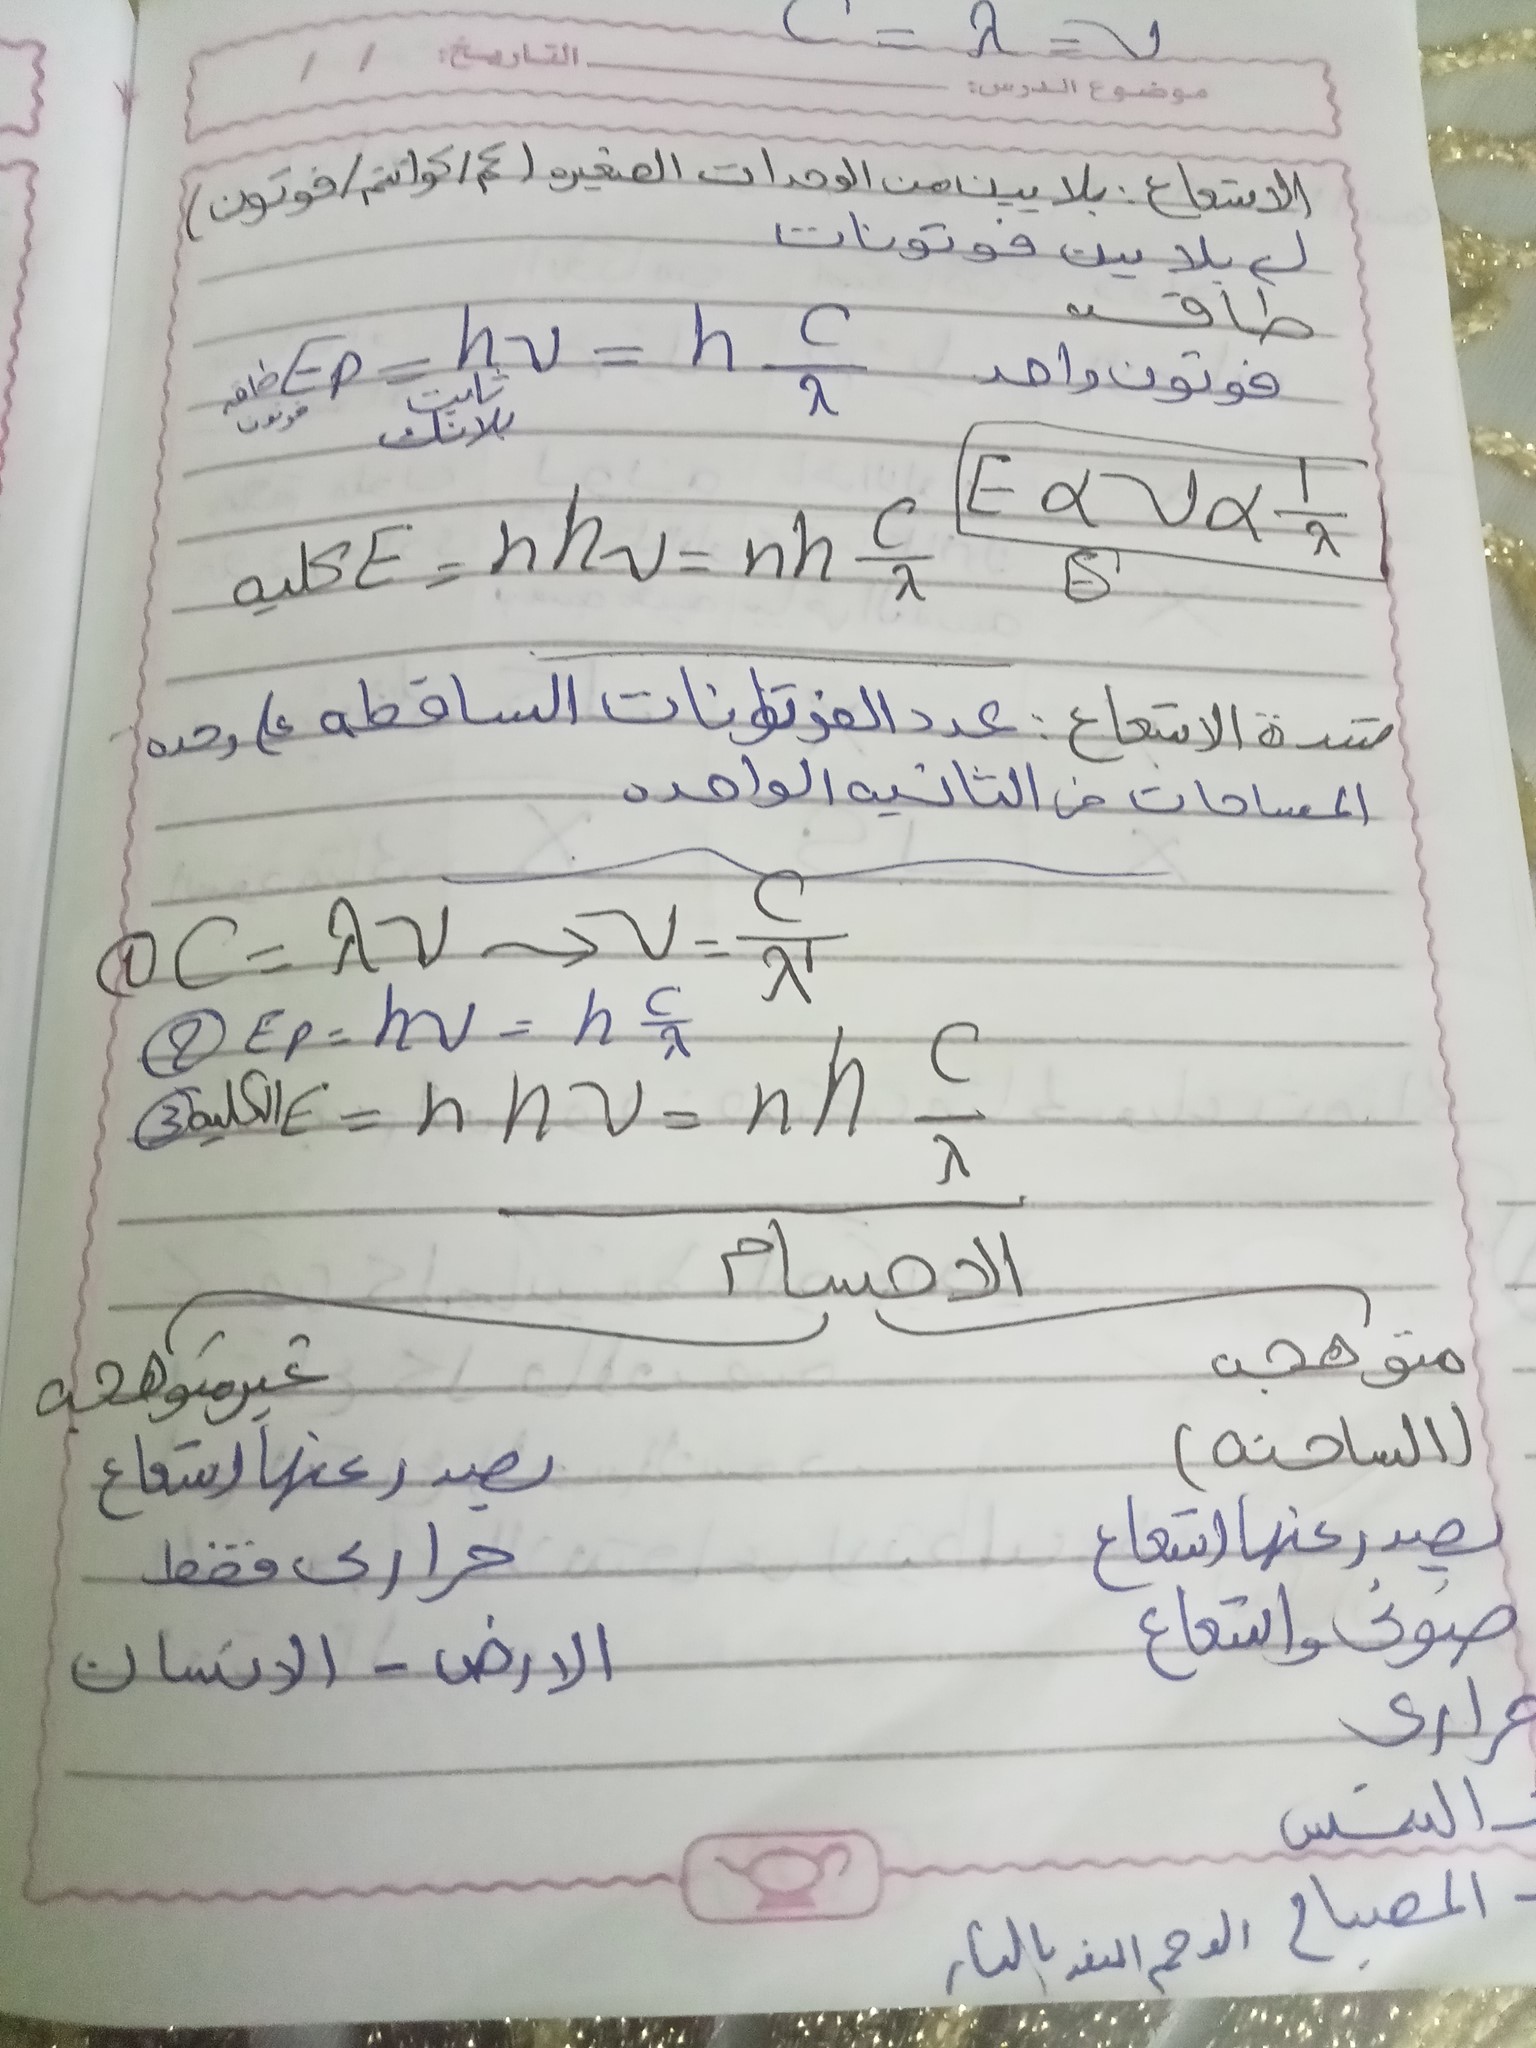 C = λ = ν
التاريخ: / /
موضوع الدرس:
الاشعاع: بلايين من الوحدات الصغيره (كم/كوانتم/فوتون)
بلايين فوتونات
طاقه
فوتون واحد Ep = hν = h C/λ
طاقه فوتون
ثابت بلانك
E α ν α 1/λ
E كليه = nhν = nh C/λ
شدة الاشعاع: عدد الفوتونات الساقطه على وحده
المساحات فى الثانيه الواحده
① C = λν → ν = C/λ
② Ep = hν = h C/λ
③ E الكليه = n h ν = nh C/λ
الاجسام
متوهجه
(الساخنه)
يصدر عنها اشعاع
ضوئى واشعاع
حرارى
- الشمس
- المصباح الفحم المتقد بالنار
غير متوهجه
يصدر عنها اشعاع
حرارى فقط
الارض - الانسان